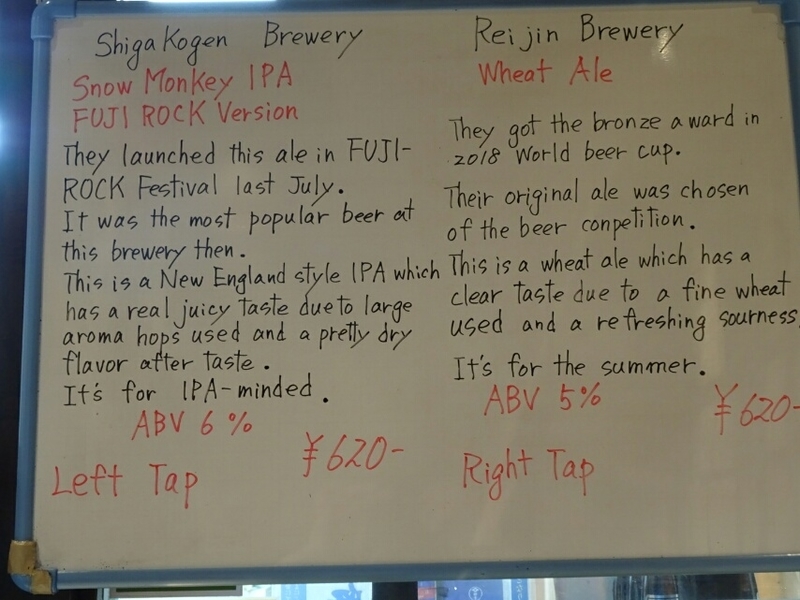 Shiga Kogen Brewery
Snow Monkey IPA
FUJI ROCK Version
They launched this ale in FUJI-
ROCK Festival last July.
It was the most popular beer at
this brewery then.
This is a New England style IPA which
has a real juicy taste due to large
aroma hops used and a pretty dry
flavor after taste.
It's for IPA-minded.
ABV 6%
¥620-
Left Tap
Reijin Brewery
Wheat Ale
They got the bronze award in
2018 World beer cup.
Their original ale was chosen
of the beer conpetition.
This is a wheat ale which has a
clear taste due to a fine wheat
used and a refreshing sourness.
It's for the summer.
ABV 5%
¥620-
Right Tap